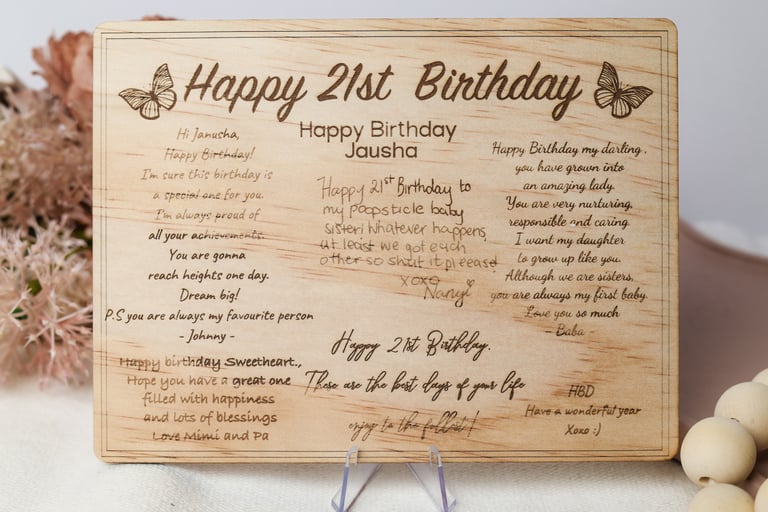 Happy 21st Birthday
Hi Janusha,
Happy Birthday!
I'm sure this birthday is
a special one for you.
I'm always proud of
all your achievements.
You are gonna
reach heights one day.
Dream big!
P.S you are always my favourite person
- Johnny -
Happy birthday Sweetheart.,
Hope you have a great one
filled with happiness
and lots of blessings
Love Mimi and Pa
Happy Birthday
Jausha
Happy 21st Birthday to
my popsticle baby
sister! Whatever happens,
at least we got each
other so shut it pleeased
xoxo
Nanyi
Happy 21st Birthday.
These are the best days of your life
enjoy to the fullest!
Happy Birthday my darling,
you have grown into
an amazing lady.
You are very nurturing,
responsible and caring.
I want my daughter
to grow up like you.
Although we are sisters,
you are always my first baby.
Love you so much
- Baba -
HBD
Have a wonderful year
Xoxo :)